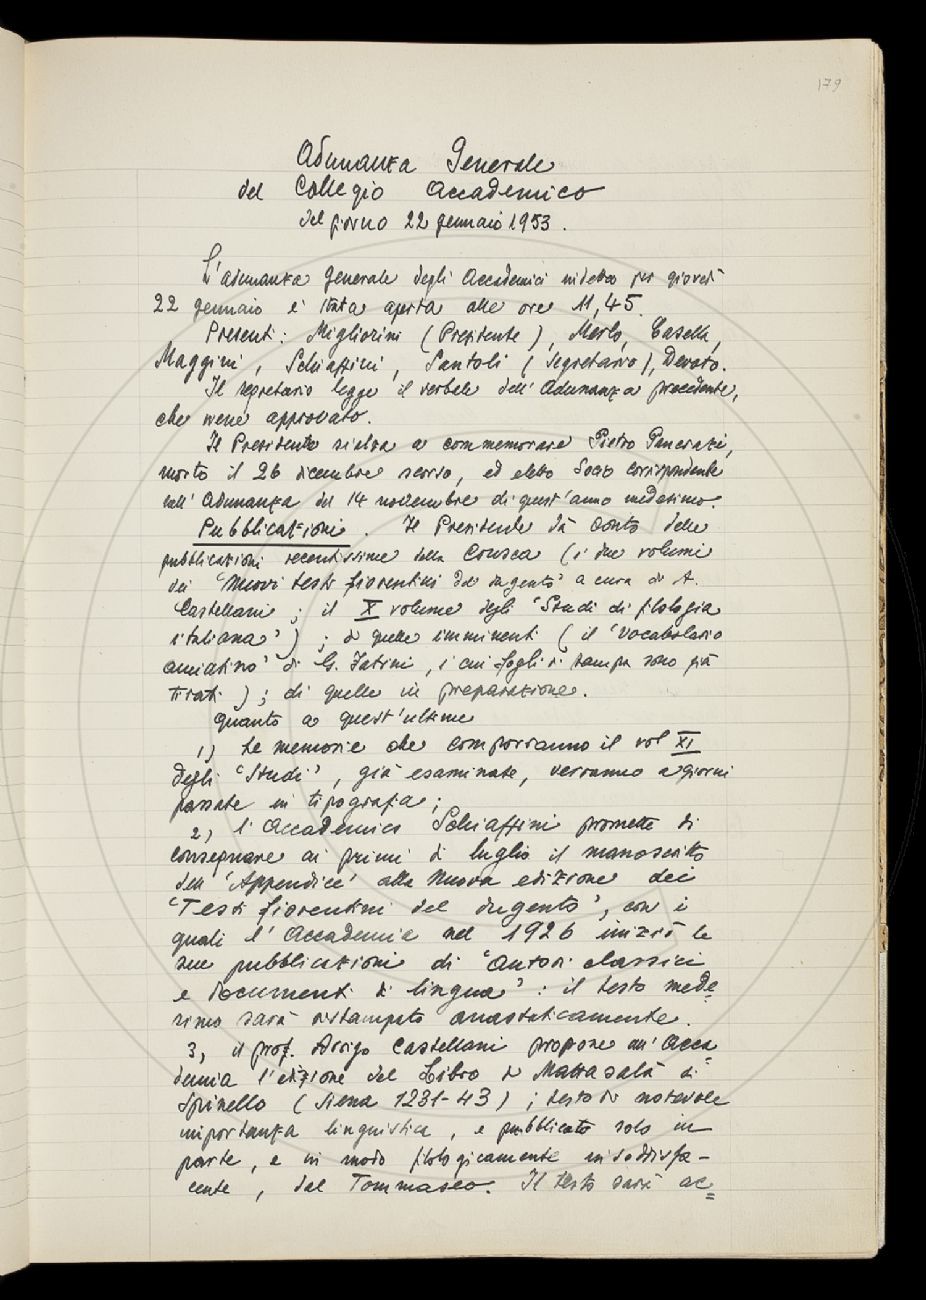 179
Adunanza Generale
del Collegio Accademico
del giorno 22 gennaio 1953.
L'adunanza generale degli Accademici indetta per giovedì
22 gennaio è stata aperta alle ore 11,45.
Presenti: Migliorini (Presidente), Merlo, Casella,
Maggini, Schiaffini, Santoli (Segretario), Devoto.
Il segretario legge il verbale dell'Adunanza precedente,
che viene approvato.
Il Presidente si alza a commemorare Pietro Pancrazi,
morto il 26 dicembre scorso, ed eletto Socio corrispondente
nell'Adunanza del 14 novembre di quest'anno medesimo.
Pubblicazioni. Il Presidente dà conto delle
pubblicazioni recentissime della Crusca (i due volumi
dei 'Nuovi testi fiorentini del dugento' a cura di A.
Castellani; il X volume degli 'Studi di filologia
italiana'); di quelle imminenti (il 'Vocabolario
amiatino' di G. Fatini, i cui fogli di stampa sono già
tirati); di quelle in preparazione.
Quanto a quest'ultime
1) Le memorie che comporranno il vol XI
degli 'Studi', già esaminate, verranno a giorni
passate in tipografia;
2) l'Accademico Schiaffini promette di
consegnare ai primi di luglio il manoscritto
dell''Appendice' alla nuova edizione dei
'Testi fiorentini del dugento', con i
quali l'Accademia nel 1926 iniziò le
sue pubblicazioni di 'autori classici
e documenti di lingua': il testo mede=
simo sarà ristampato anastaticamente.
3, il prof. Arrigo Castellani propone all'Acca=
demia l'edizione del Libro di Mattasalà di
Spinello (Siena 1231-43); testo di notevole
importanza linguistica, e pubblicato solo in
parte, e in modo filologicamente insoddisfa-
cente, dal Tommaseo. Il testo sarà ac=